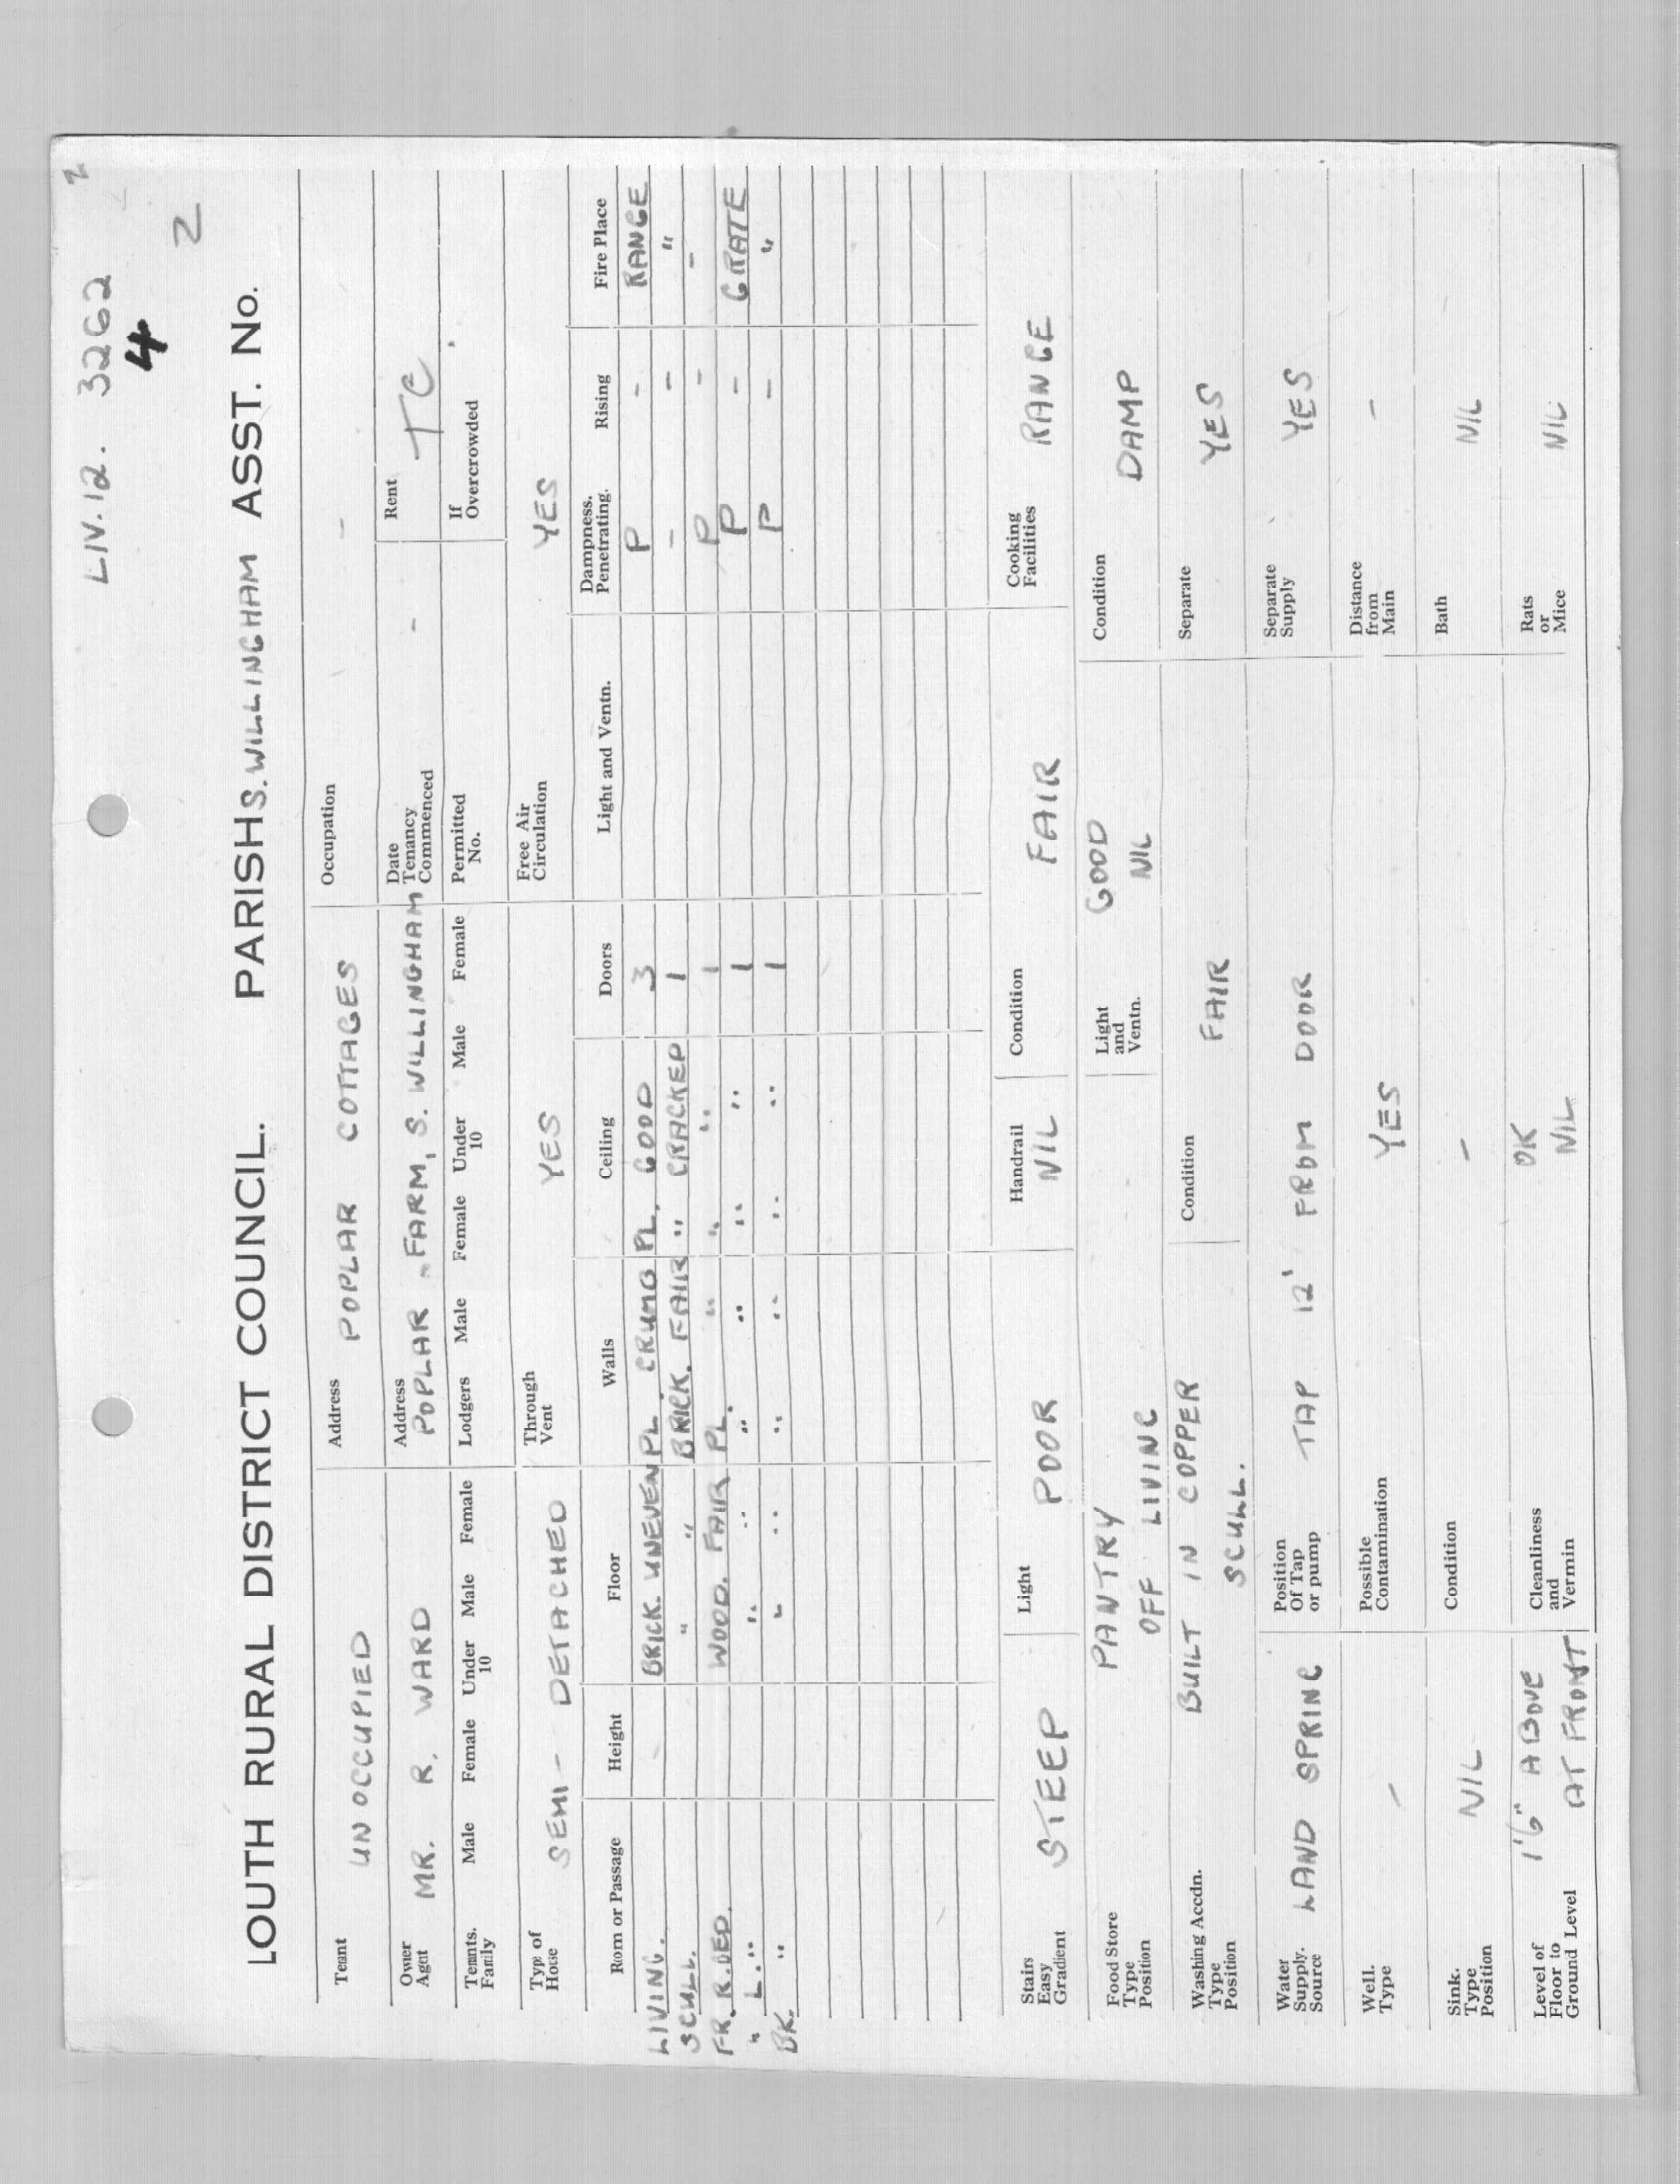 LIV.12. 3262
4
2
LOUTH RURAL DISTRICT COUNCIL. PARISH S. WILLINGHAM ASST. No.
Tenant UNOCCUPIED Address POPLAR COTTAGES Occupation -
Owner Agent MR. R. WARD Address POPLAR FARM, S. WILLINGHAM Date Tenancy Commenced - Rent TC
Tenants. Family Male Female Under 10 Male Female Lodgers Male Female Under 10 Male Female Permitted No. If Overcrowded
Type of House SEMI-DETACHED Through Vent YES Free Air Circulation YES
Room or Passage Height Floor Walls Ceiling Doors Light and Ventn. Dampness. Penetrating. Rising Fire Place
LIVING. BRICK. UNEVEN PL. CRUMG PL. GOOD 3 P - RANGE
SCULL. " " BRICK. FAIR " CRACKED 1 - - "
FR. R. BED. WOOD. FAIR PL. " " " 1 P - -
" L. " " " " " " " 1 P - GRATE
BK. " " " " " " " 1 P - "
Stairs Easy Gradient STEEP Light POOR Handrail NIL Condition FAIR Cooking Facilities RANGE
Food Store Type Position PANTRY OFF LIVING Light and Ventn. GOOD NIL Condition DAMP
Washing Accdn. Type Position BUILT IN COPPER SCULL. Condition FAIR Separate YES
Water Supply. Source LAND SPRING Position Of Tap or pump TAP 12' FROM DOOR Separate Supply YES
Well. Type - Possible Contamination YES Distance from Main -
Sink. Type Position NIL Condition - Bath NIL
Level of Floor to Ground Level 1'6" ABOVE AT FRONT Cleanliness and Vermin OK NIL Rats or Mice NIL